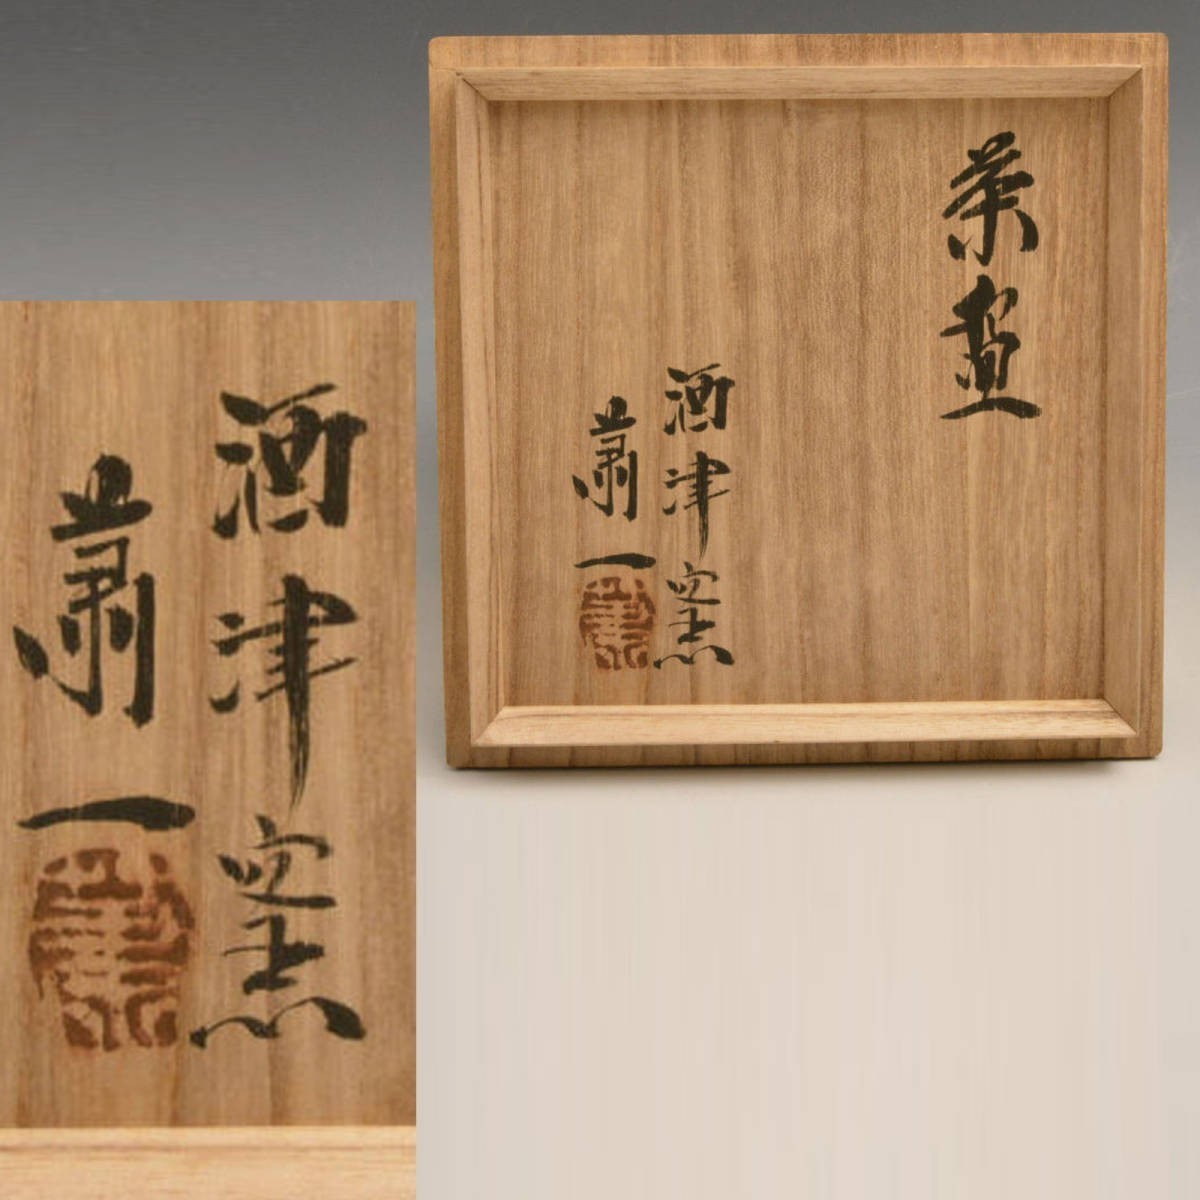 茶盌
酒津窯
蕭一
酒津窯
蕭一